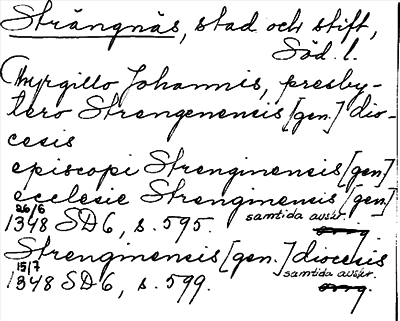 Strängnäs, stad och stift,
Söd. l.
Thyrgillo Johannis, presby-
tero Strengenensis [gen.] dio-
cesis
episcopi Strenginensis [gen.]
ecclesie Strenginensis [gen.]
26/6 1348 SD 6, s. 595. samtida avskr.
Strenginensis [gen.] diocesis
15/7 1348 SD 6, s. 599. samtida avskr.